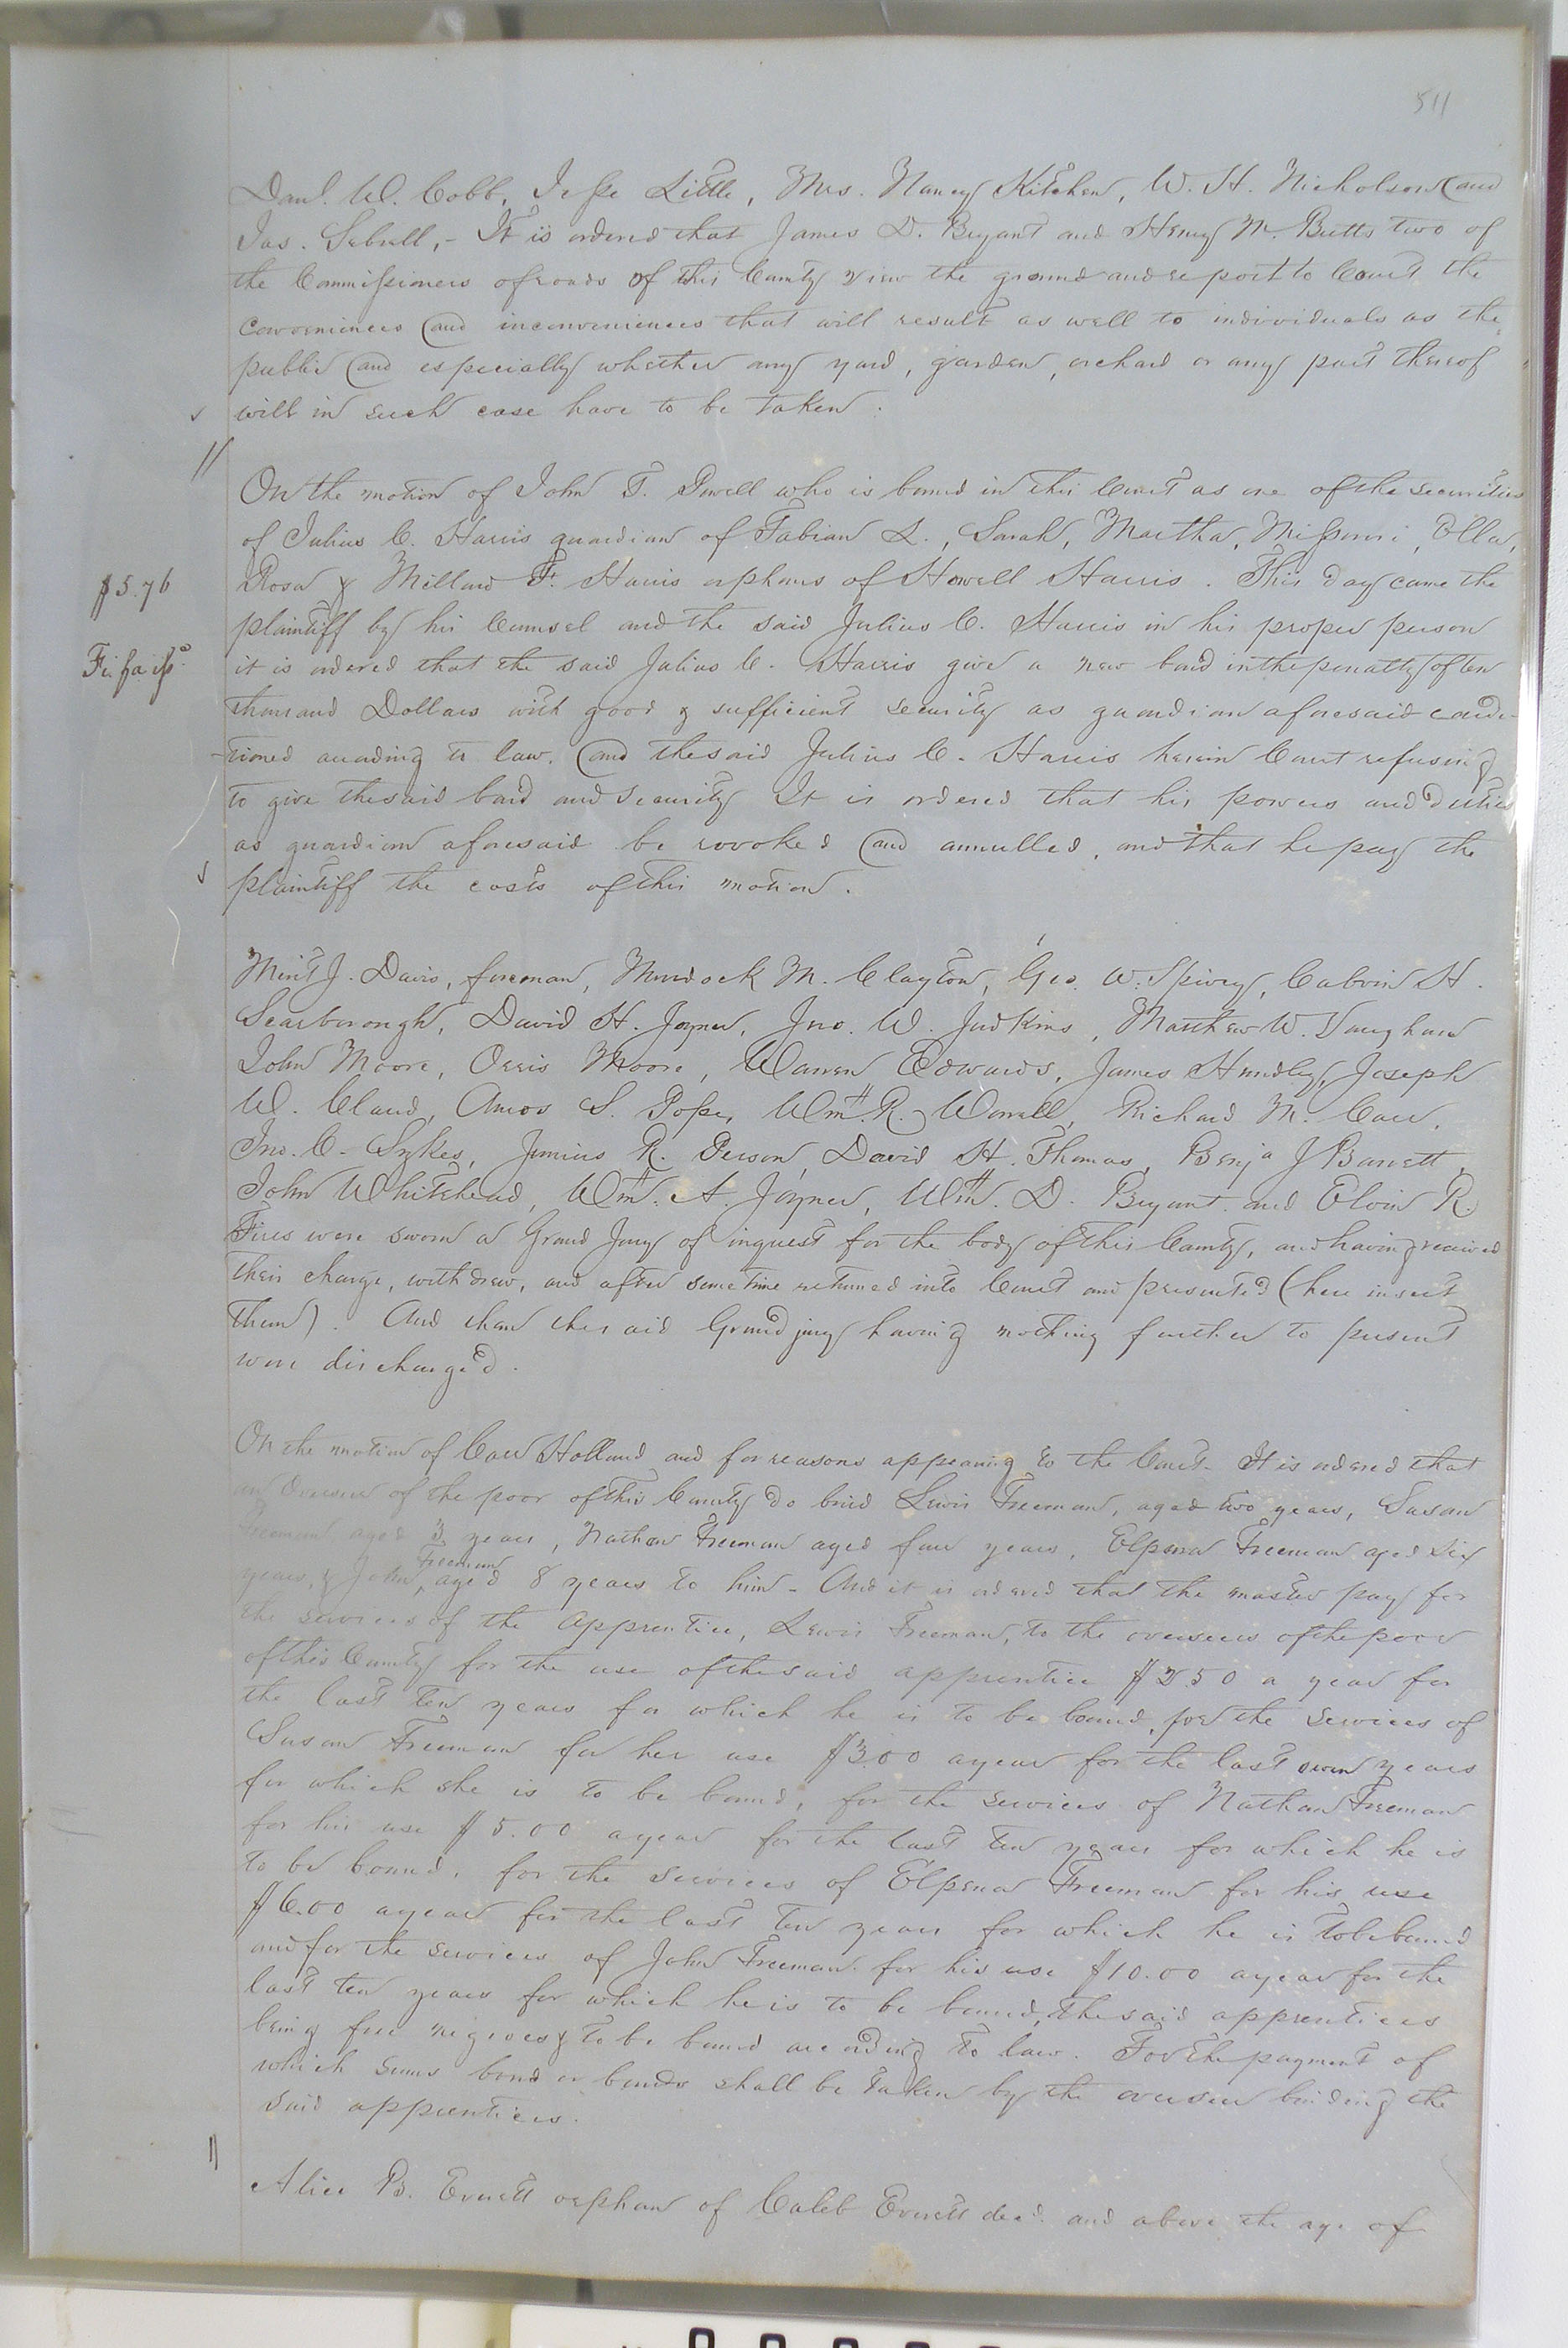 511
Danl. W. Cobb, Jesse Little, Mrs. Nancy Kitchen, W. H. Nicholson and
Jas. Sebrell, - It is ordered that James D. Bryant and Henry M. Butts two of
the Commissioners of roads of this County view the ground and report to Court the
conveniences and inconveniences that will result as well to individuals as the
public and especially whether any yard, garden, orchard or any part thereof
will in such case have to be taken.
On the motion of John T. Powell who is bound in this Court as one of the securities
of Julius C. Harris guardian of Fabian L., Sarah, Martha, Missouri, Olla,
$5.76
Rosa & Millard F. Harris orphans of Howell Harris. This day came the
plaintiff by his Counsel and the said Julius C. Harris in his proper person
Fi. fa issd.
it is ordered that the said Julius C. Harris give a new bond in the penalty of ten
thousand Dollars with good & sufficient security as guardian aforesaid condi-
-tioned according to law, and the said Julius C. Harris herein Court refusing
to give the said bond and security It is ordered that his powers and duties
as guardian aforesaid be revoked and annulled, and that he pay the
plaintiff the costs of this motion.
J. Davis, foreman, Murdock M. Clayton, Geo. W. Spivey, Calvin H.
Scarborough, David H. Joyner, Jno. W. Judkins, Matthew W. Vaughan
John Moore, Orris Moore, Warren Edwards, James Hundley, Joseph
W. Claud, Amos S. Pope, Wm. R. Worrell, Richard M. Carr,
Jno. C. Sykes, Junius R. Person, David H. Thomas, Benja J Barrett,
John Whitehead, Wm. A. Joyner, Wm. D. Bryant and Elvin R.
were sworn a Grand Jury of inquest for the body of this County, and having received
their charge, withdrew, and after sometime returned into Court and presented (here insert
them). And then the said Grand jury having nothing further to present
were discharged.
On the motion of Carr Holland and for reasons appearing to the Court - It is ordered that
an Overseer of the poor of this County do bind Lewis Freeman, aged two years, Susan
Freeman aged 3 years, Nathan Freeman aged four years, Elpenor Freeman aged six
years, & John Freeman, aged 8 years to him - And it is ordered that the master pay for
the services of the Apprentice, Lewis Freeman, to the overseers of the poor
of this County for the use of the said apprentice $2.50 a year for
the last ten years for which he is to be bound, for the services of
Susan Freeman for her use $3.00 a year for the last seven years
for which she is to be bound, for the services of Nathan Freeman
for his use $5.00 a year for the last ten years for which he is
to be bound, for the services of Elpenor Freeman for his use
$6.00 a year for the last ten years for which he is to be bound
and for the services of John Freeman for his use $10.00 a year for the
last ten years for which he is to be bound, the said apprentices
being free negroes & to be bound according to law. For the payment of
which sums bond or bonds shall be taken by the overseer binding the
said apprentices.
Alice B. Everett orphan of Caleb Everett decd. and above the age of